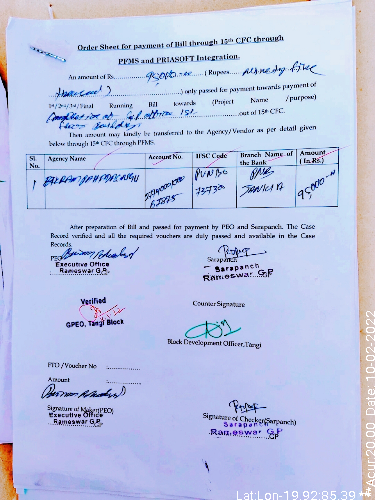 Order Sheet for payment of Bill through 15th CFC through
PFMS and PRIASOFT Integration.
An amount of Rs. 95,000.00 (Rupees Ninety five
thousand) only passed for payment towards payment of
1st/2nd/3rd/Final Running Bill towards (Project Name /purpose)
Completion of G.P. office out of 15th CFC.
Then amount may kindly be transferred to the Agency/Vendor as per detail given
below through 15th CFC through PFMS.
Sl. No. Agency Name Account No. IISC Code Branch Name of the Bank Amount ( In.RS.)
1 PUNB0 737300 PNB JANKIA 95,000.00
After preparation of Bill and passed for payment by PEO and Sarapanch. The Case
Record verified and all the required vouchers are duly passed and available in the Case
Records.
PEO Sarapanch
Executive Office Sarapanch
Rameswar G.P. Rameswar G.P
Verified Counter Signature
GPEO, Tangi Block
Block Development Officer, Tangi
PTO /Voucher No
Amount
Signature of Maker(PEO) Signature of Checker(Sarpanch)
Executive Office Sarapanch
Rameswar G.P Rameswar G.P
Lat:Lon-19.92:85.39 ***Acur:20.00, Date, 10-02-2022